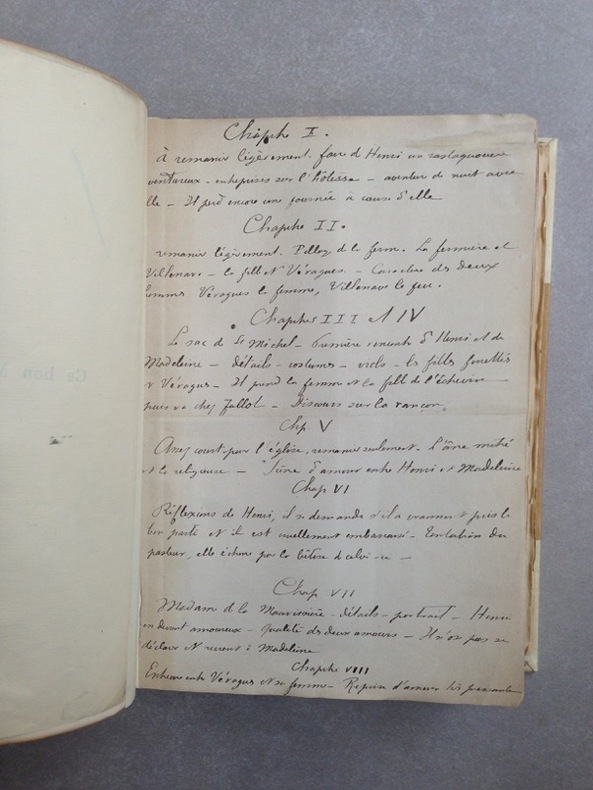 Chapitre I.
à remanier légèrement. faire d'Henri un rastaquouère
aventureux – entreprises sur l'hôtesse – aventure de nuit avec
elle – Il perd encore une journée à cause d'elle
Chapitre II.
remanier légèrement. Pillage de la ferme. La fermière et
Villenave – la fille et Véragues – Caractère des deux
hommes Véragues la femme, Villenave le feu.
Chapitres III et IV
Le sac de St Michel – Première rencontre d'Henri et de
Madeleine – détails – costumes – viols – les filles fouettées
et Véragues – Il prend la femme et la fille de l'échevin
puis va chez Fallot – Discours sur la rançon
Chp. V
Assez court pour l'église, remanier seulement. l'âne mitré
et la religieuse – Scène d'amour entre Henri et Madeleine
Chap VI
Réflexions de Henri, il se demande s'il a vraiment pris le
bon parti et il est cruellement embarrassé – Tentation du
pasteur, elle échoue par la bêtise de celui-ci –
Chap VII
Madame de la – détails – portrait – Henri
en devient amoureux – Qualité des deux amours – Il n'ose pas se
déclarer et revient à Madeleine
Chapitre VIII
Entrevue entre Véragues et sa femme – d'amour très
Ce bon